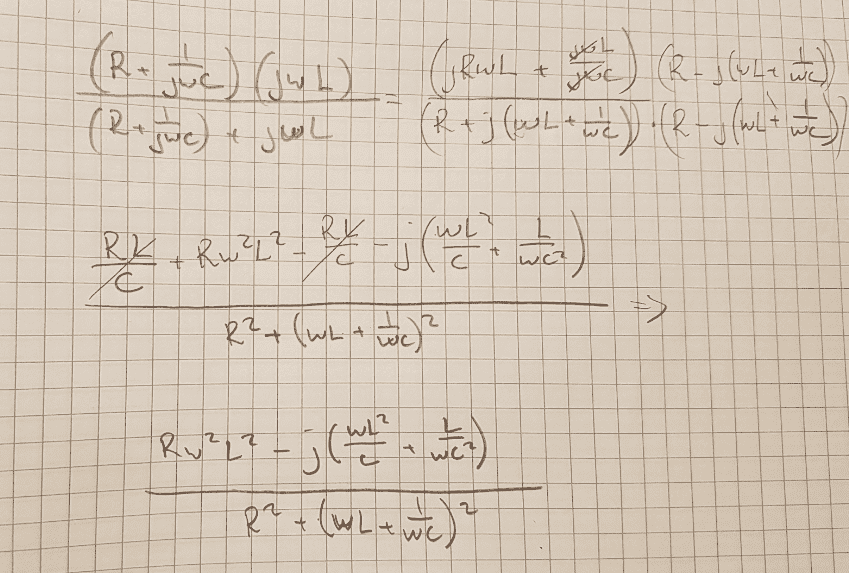 \frac{(R + \frac{1}{jwc})(jwL)}{(R + \frac{1}{jwc}) + jwL} = \frac{(jRwL + \frac{jwL}{jwc})(R - j(wL + \frac{1}{wc}))}{(R + j(wL + \frac{1}{wc})) \cdot (R - j(wL + \frac{1}{wc}))}
\frac{\frac{RL}{C} + Rw^2L^2 - \frac{RL}{C} - j(\frac{wL^2}{C} + \frac{L}{wc^2})}{R^2 + (wL + \frac{1}{wc})^2} \Rightarrow
\frac{Rw^2L^2 - j(\frac{wL^2}{C} + \frac{L}{wc^2})}{R^2 + (wL + \frac{1}{wc})^2}